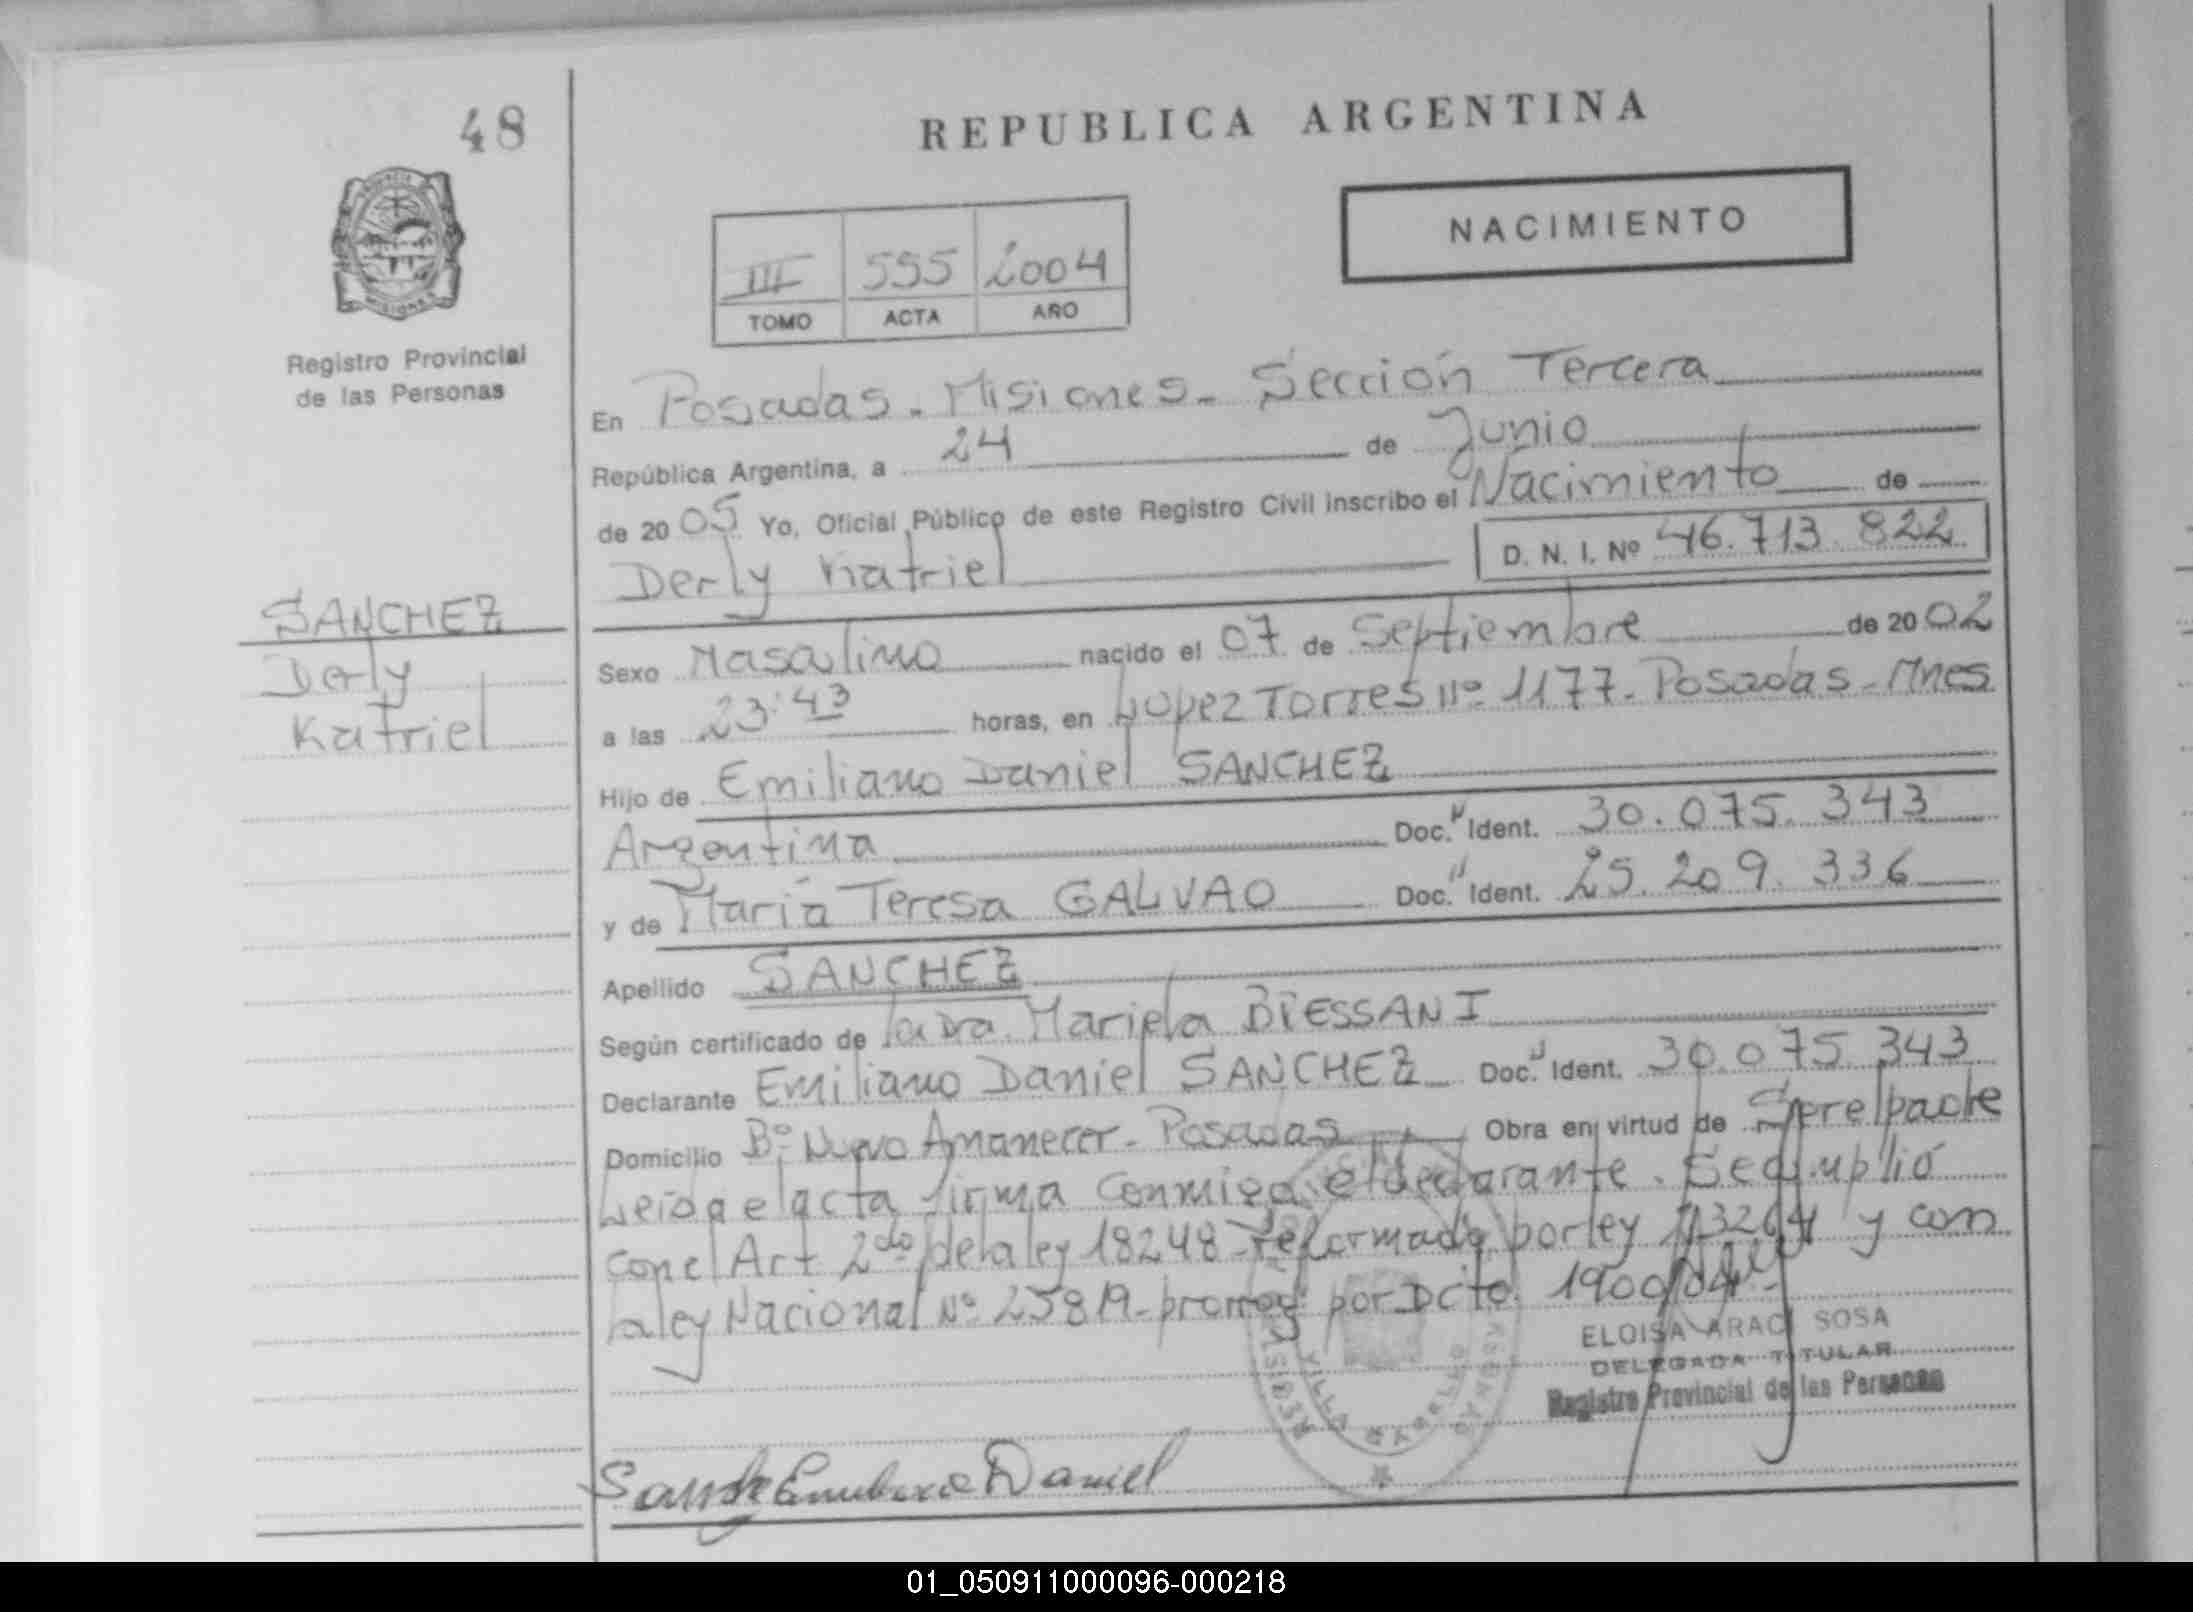 48
REPUBLICA ARGENTINA
NACIMIENTO
III 555 2004
TOMO ACTA AÑO
Registro Provincial
de las Personas
En Posadas - Misiones - Sección Tercera
República Argentina, a 24 de Junio
de 2005 Yo, Oficial Público de este Registro Civil inscribo el Nacimiento de
Derly Katriel D. N. I. Nº 46.713.822
SANCHEZ
Derly
Katriel
Sexo Masculino nacido el 07 de Septiembre de 2002
a las 23:43 horas, en Lopez Torres Nº 1177 - Posadas - Mnes
Hijo de Emiliano Daniel SANCHEZ
Argentina Doc. Ident. 30.075.343
y de María Teresa GALVAO Doc. Ident. 25.209.336
Apellido SANCHEZ
Según certificado de la Dra. Mariela BRESSANI
Declarante Emiliano Daniel SANCHEZ Doc. Ident. 30.075.343
Domicilio Bº Nuevo Amanecer - Posadas Obra en virtud de Ser el padre
Leida el acta firma conmigo el declarante. Se cumplió
con el Art 2do de la ley 18248 reformada por ley 23264 y con
la ley Nacional Nº 25819 - promog por Dcto. 1900/04 -
ELOISA ARACI SOSA
DELEGADA TITULAR
Registro Provincial de las Personas
Emiliano Daniel
01_050911000096-000218